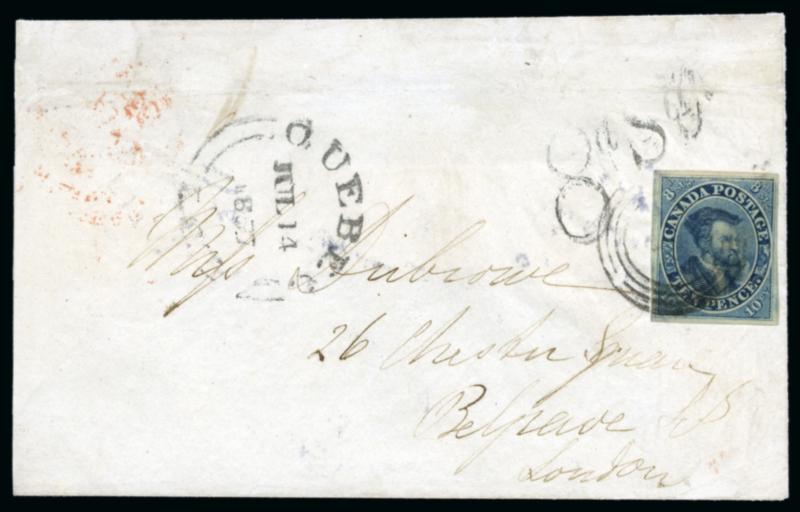 QUEBEC
JUL 14
8d stg
CANADA POSTAGE
8
8
TEN PENCE
10
Miss Dubrowe
26 Chester Square
Belgrave Sq
London